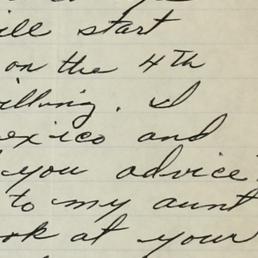 ill start
on the 4th
illing. I
exico and
you advice
to my aunt
ok at your